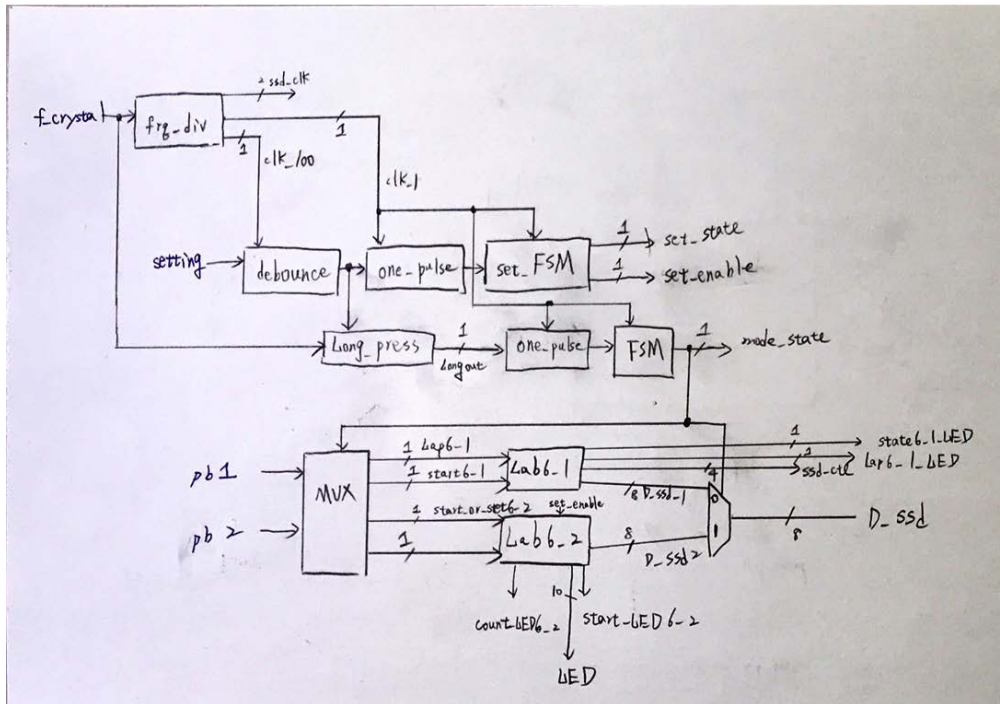 2 ssd_clk
f_crystal
frq_div
1
1
clk_100
clk_1
setting
debounce
one_pulse
set_FSM
1
set_state
1
set_enable
Long_press
1
Longout
one_pulse
FSM
1
mode_state
pb1
pb 2
MUX
1 Lap6-1
1 start6-1
1 start_or_set6-2
1
Lab6_1
set_enable
Lab6_2
1
state6_1_LED
1
Lap6_1_LED
4
ssd_ctl
8 D_ssd_1
8
D_ssd2
0
1
8
D_ssd
10
count_LED6_2
start_LED6_2
LED